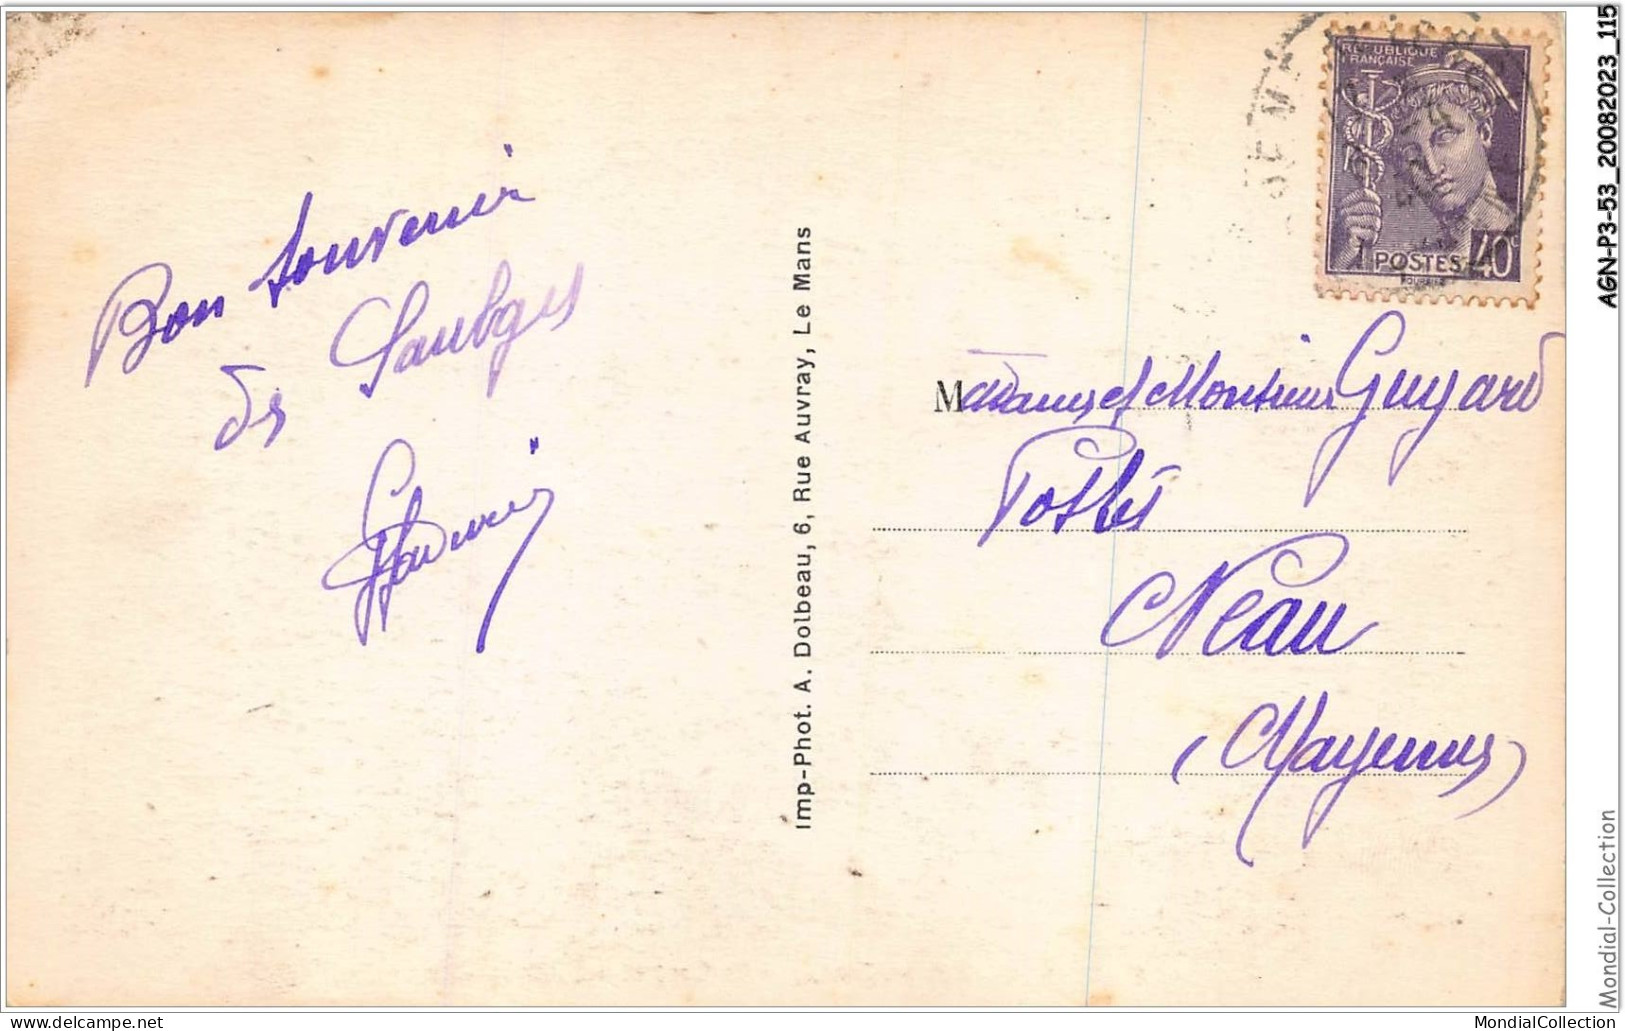 Bon souvenir
de Saulges
Imp-Phot. A. Dolbeau, 6, Rue Auvray, Le Mans
RÉPUBLIQUE
FRANÇAISE
POSTES 40c
Madame et Monsieur Guyard
Postes
Neau
(Mayenne)
AGN-P3-53_20082023_115
Mondial-Collection
delcampe.net
MondialCollection